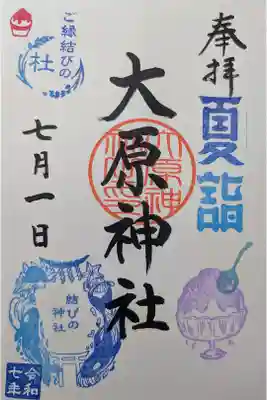 奉拝
夏詣
大原神社
ご縁結びの
社
七月一日
結びの
神社
令和
七年